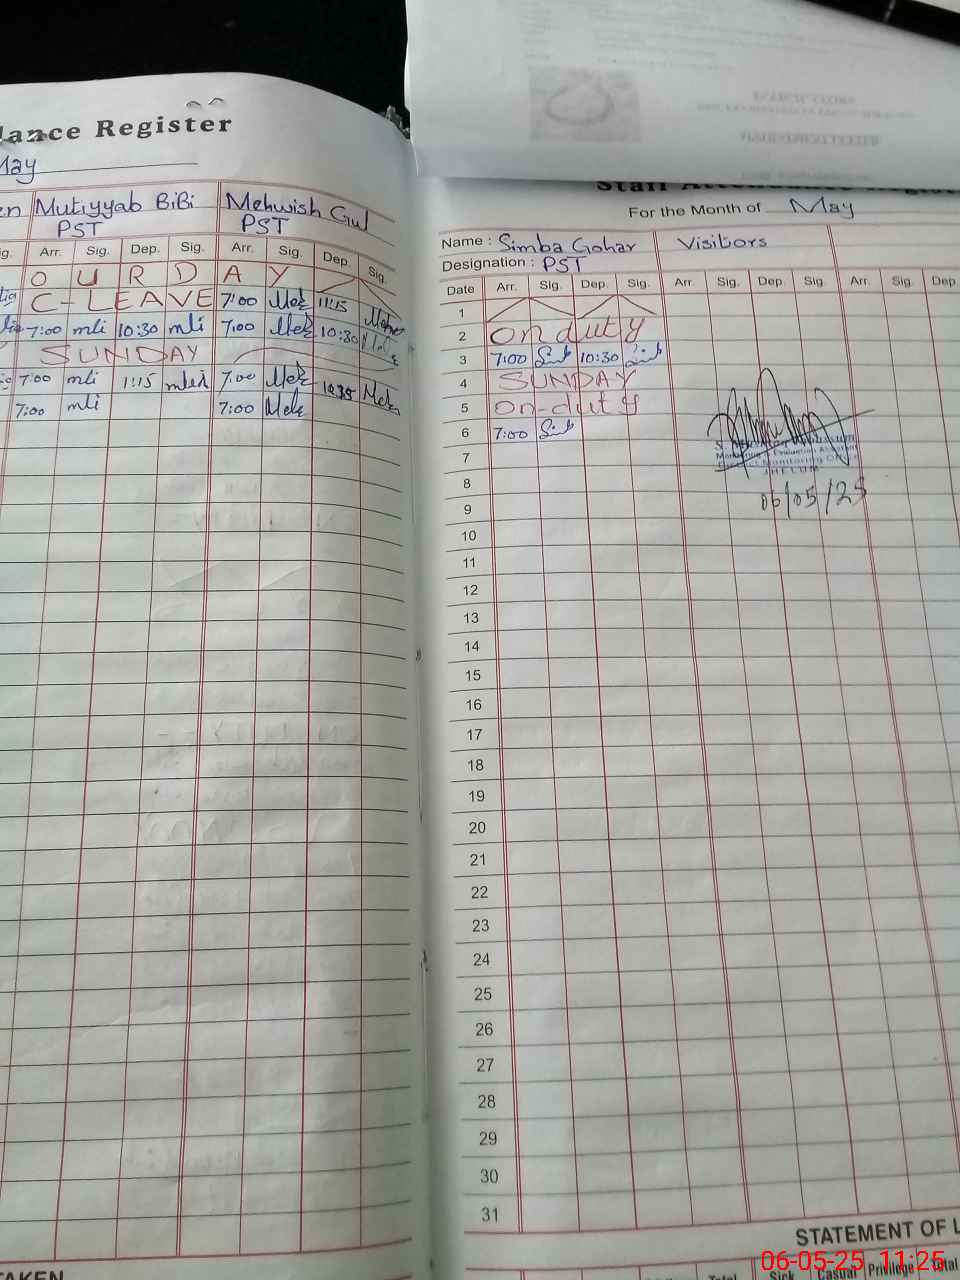 dance Register
May
en Mutiyyab BiBi Mehwish Gul
PST PST
ig. Arr. Sig. Dep. Sig. Arr. Sig. Dep. Sig.
O U R D A Y
C-LEAVE 7:00 Meh 11:15
7:00 mti 10:30 mti 7:00 Meh 10:30
SUNDAY
7:00 mti 1:15 7:00 Meh Meh
7:00 mti 7:00 Meh
TAKEN
Staff Attendance Regist
For the Month of May
Name : Simba Gohar Visitors
Designation : PST
Date Arr. Sig. Dep. Sig. Arr. Sig. Dep Sig. Arr. Sig. Dep
1
2 On duty
3 7:00 Simb 10:30 Simb
4 SUNDAY
5 On-duty
6 7:00 Simb
Monitoring & Evaluation Assistant
District Monitoring Office
JHELUM
06/05/25
7
8
9
10
11
12
13
14
15
16
17
18
19
20
21
22
23
24
25
26
27
28
29
30
31
STATEMENT OF L
Sick Casual Privilege Total
Total
06-05-25 11:25